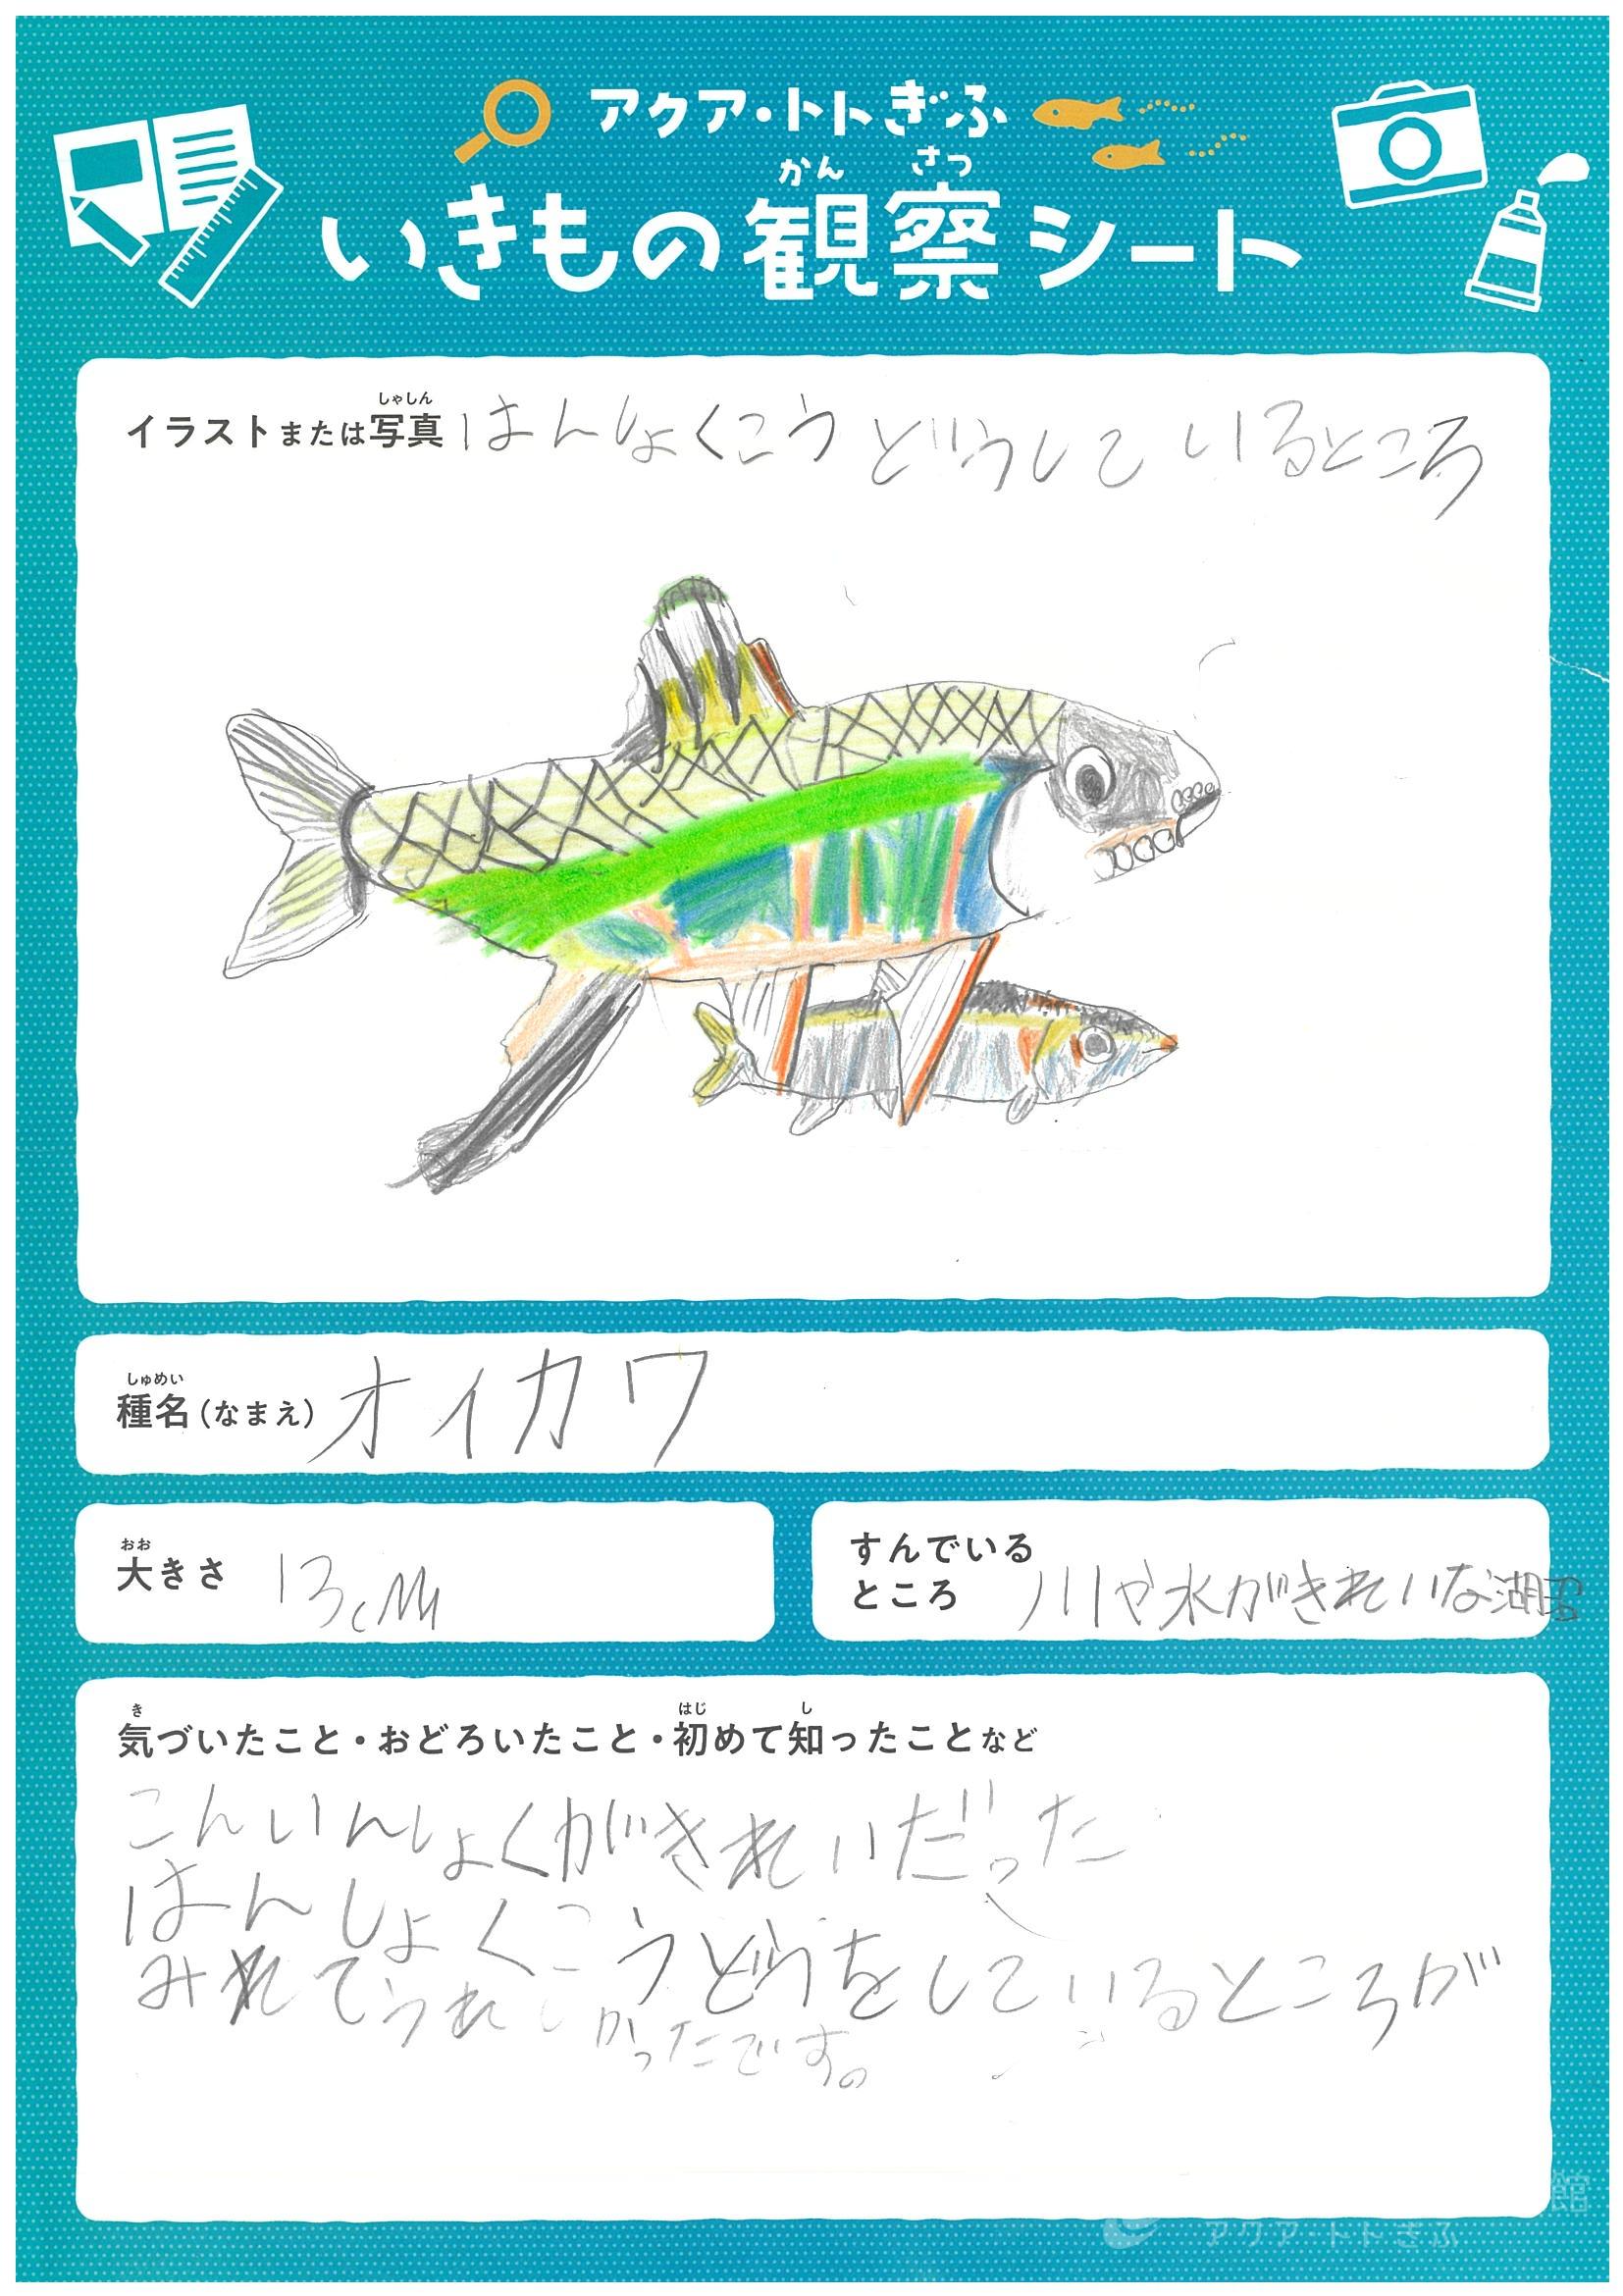 アクア・トトぎふ
かん さつ
いきもの観察シート
しゃしん
イラストまたは写真 はんしょくこうどうしているところ
しゅめい
種名(なまえ) オイカワ
おお
大きさ 13cm
すんでいる
ところ 川や水がきれいな湖
き はじ し
気づいたこと・おどろいたこと・初めて知ったことなど
こんいんしょくがきれいだった
はんしょくこうどうをしているところが
みれてうれしかったです。
館
アクア・トトぎふ